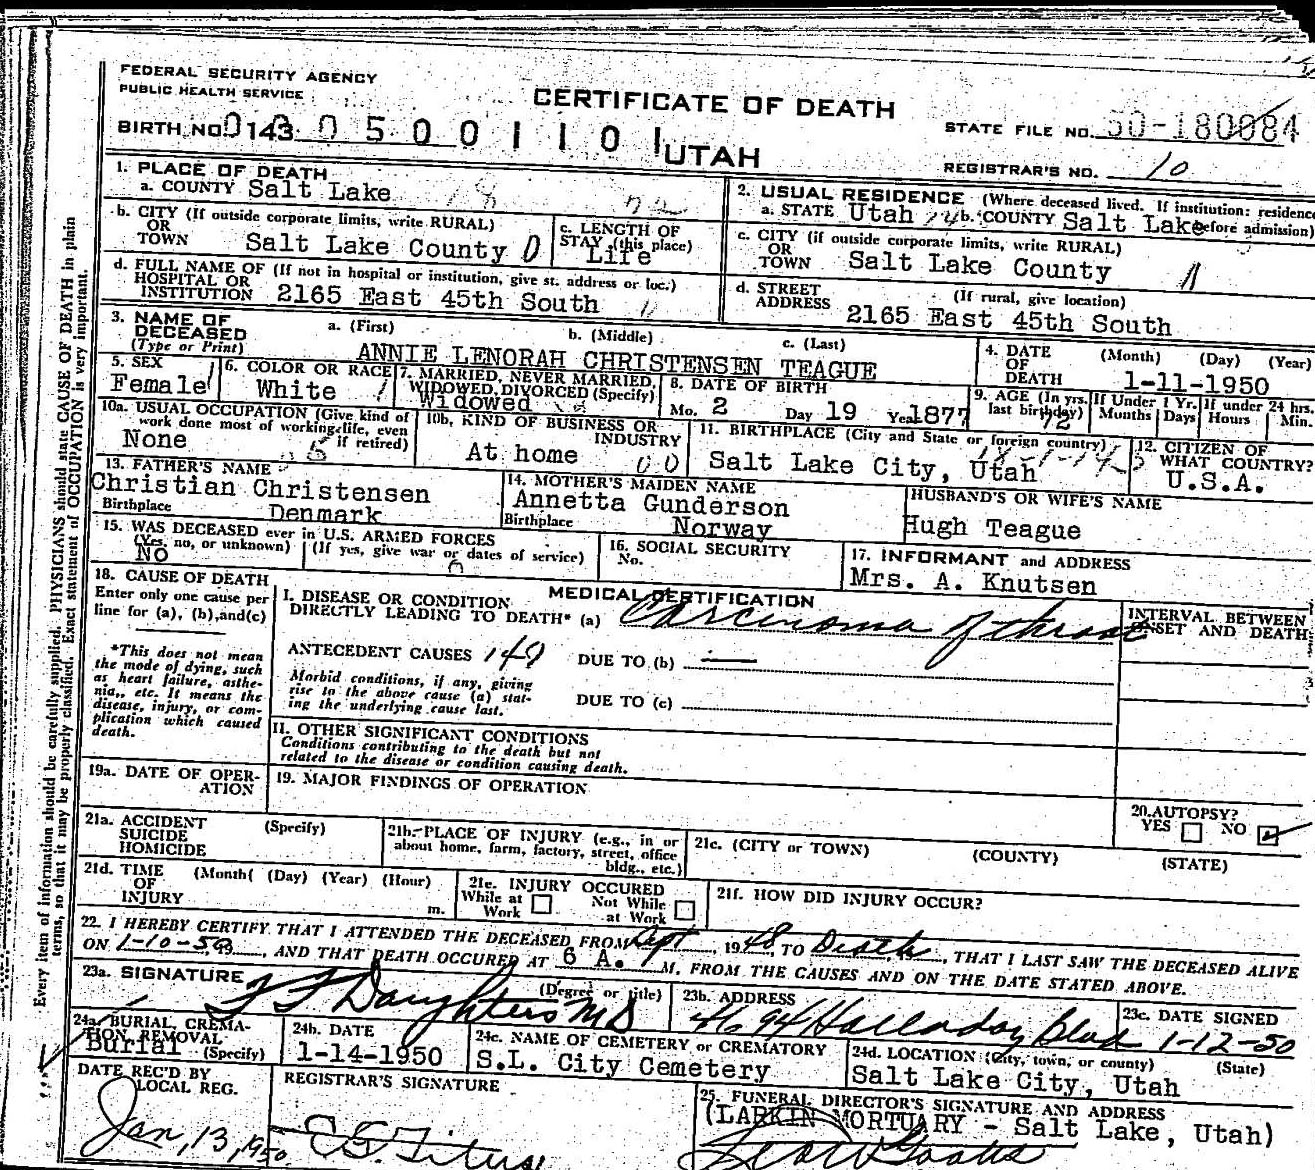 FEDERAL SECURITY AGENCY
PUBLIC HEALTH SERVICE
CERTIFICATE OF DEATH
UTAH
BIRTH NO. 0143 0 5 0 0 1 1 0 1
STATE FILE NO. 50-180084
REGISTRAR'S NO. 10
1. PLACE OF DEATH
a. COUNTY Salt Lake
b. CITY (If outside corporate limits, write RURAL)
OR
TOWN Salt Lake County 0
c. LENGTH OF
STAY (this place)
Life
d. FULL NAME OF (If not in hospital or institution, give st. address or loc.)
HOSPITAL OR
INSTITUTION 2165 East 45th South
2. USUAL RESIDENCE (Where deceased lived. If institution: residence
before admission)
a. STATE Utah b. COUNTY Salt Lake
c. CITY (if outside corporate limits, write RURAL)
OR
TOWN Salt Lake County
d. STREET (If rural, give location)
ADDRESS 2165 East 45th South
3. NAME OF
DECEASED
(Type or Print)
a. (First) b. (Middle) c. (Last)
ANNIE LENORAH CHRISTENSEN TEAGUE
4. DATE (Month) (Day) (Year)
OF
DEATH 1-11-1950
5. SEX
Female
6. COLOR OR RACE
White
7. MARRIED, NEVER MARRIED,
WIDOWED, DIVORCED (Specify)
Widowed
8. DATE OF BIRTH
Mo. 2 Day 19 Year 1877
9. AGE (In yrs. last birthday) 72
If Under 1 Yr. Months Days
If under 24 hrs. Hours Min.
10a. USUAL OCCUPATION (Give kind of
work done most of working life, even
if retired)
None
10b. KIND OF BUSINESS OR
INDUSTRY
At home 00
11. BIRTHPLACE (City and State or foreign country)
Salt Lake City, Utah
12. CITIZEN OF
WHAT COUNTRY?
U.S.A.
13. FATHER'S NAME
Christian Christensen
Birthplace Denmark
14. MOTHER'S MAIDEN NAME
Annetta Gunderson
Birthplace Norway
HUSBAND'S OR WIFE'S NAME
Hugh Teague
15. WAS DECEASED ever in U.S. ARMED FORCES
(Yes, no, or unknown) (If yes, give war or dates of service)
No
16. SOCIAL SECURITY
No.
17. INFORMANT and ADDRESS
Mrs. A. Knutsen
18. CAUSE OF DEATH
Enter only one cause per
line for (a), (b), and (c)
*This does not mean
the mode of dying, such
as heart failure, asthe-
nia,, etc. It means the
disease, injury, or com-
plication which caused
death.
MEDICAL CERTIFICATION
I. DISEASE OR CONDITION
DIRECTLY LEADING TO DEATH* (a) Carcinoma of throat
INTERVAL BETWEEN
ONSET AND DEATH
ANTECEDENT CAUSES 149 DUE TO (b)
Morbid conditions, if any, giving
rise to the above cause (a) stat-
ing the underlying cause last.
DUE TO (c)
II. OTHER SIGNIFICANT CONDITIONS
Conditions contributing to the death but not
related to the disease or condition causing death.
19a. DATE OF OPER-
ATION
19. MAJOR FINDINGS OF OPERATION
20. AUTOPSY?
YES NO
21a. ACCIDENT (Specify)
SUICIDE
HOMICIDE
21b. PLACE OF INJURY (e.g., in or
about home, farm, factory, street, office
bldg., etc.)
21c. (CITY or TOWN) (COUNTY) (STATE)
21d. TIME (Month( (Day) (Year) (Hour)
OF
INJURY m.
21e. INJURY OCCURED
While at Work
Not While at Work
21f. HOW DID INJURY OCCUR?
22. I HEREBY CERTIFY THAT I ATTENDED THE DECEASED FROM Sept, 1948, TO Death, THAT I LAST SAW THE DECEASED ALIVE
ON 1-10-50, AND THAT DEATH OCCURED AT 6 A. M. FROM THE CAUSES AND ON THE DATE STATED ABOVE.
23a. SIGNATURE (Degree or title)
F F Daughters MD
23b. ADDRESS
4694 Holladay Blvd
23c. DATE SIGNED
1-12-50
24a. BURIAL, CREMA-
TION REMOVAL
Burial (Specify)
24b. DATE
1-14-1950
24c. NAME OF CEMETERY or CREMATORY
S.L. City Cemetery
24d. LOCATION (City, town, or county) (State)
Salt Lake City, Utah
DATE REC'D BY
LOCAL REG.
Jan, 13, 1950
REGISTRAR'S SIGNATURE
25. FUNERAL DIRECTOR'S SIGNATURE AND ADDRESS
(LARKIN MORTUARY - Salt Lake, Utah)
Every item of information should be carefully supplied. PHYSICIANS should state CAUSE OF DEATH in plain
terms, so that it may be properly classified. Exact statement of OCCUPATION is very important.